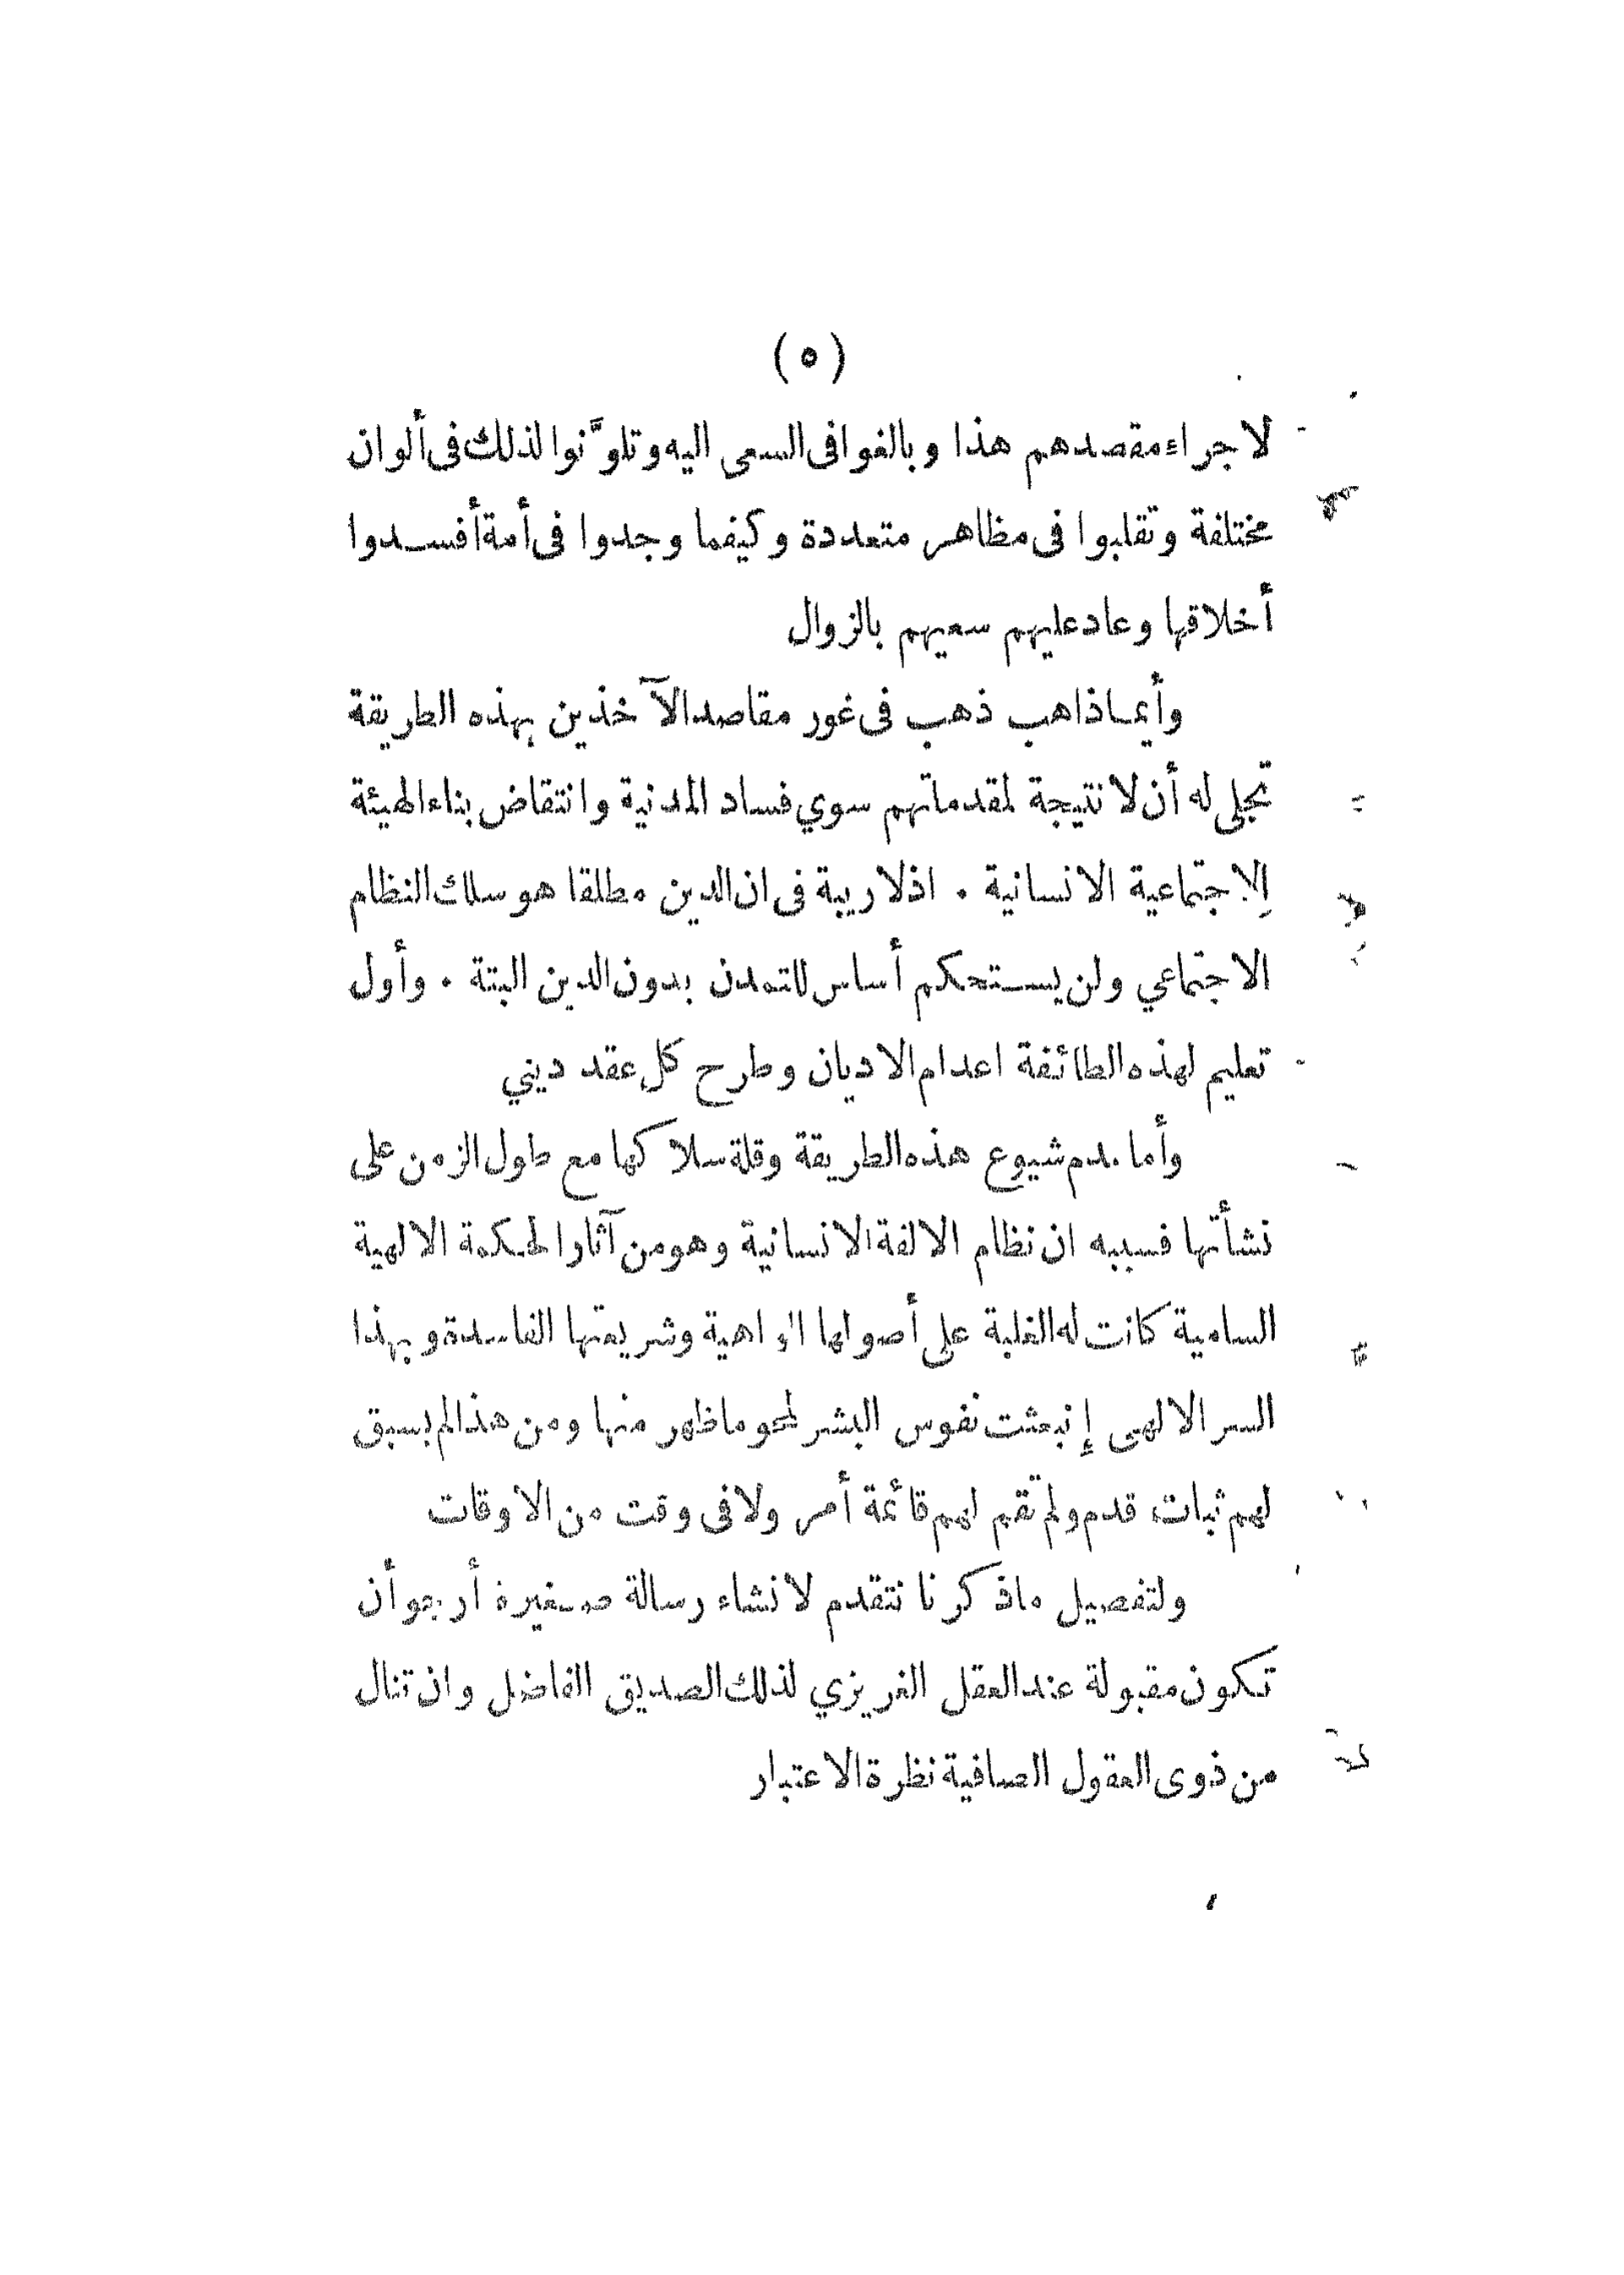 (٥)
لاجراء مقصدهم هذا وبالغوا فى السعى اليه وتلوَّنوا لذلك فى ألوان
مختلفة وتقلبوا فى مظاهر متعددة وكيفما وجدوا فى أمة أفسدوا
أخلاقها وعاد عليهم سعيهم بالزوال
وأيما ذاهب ذهب فى غور مقاصد الآخذين بهذه الطريقة
تجلى له أن لا نتيجة لمقدماتهم سوي فساد المدنية وانتقاض بناء الهيئة
الاجتماعية الانسانية . اذ لا ريبة فى ان الدين مطلقا هو سلك النظام
الاجتماعي ولن يستحكم أساس للتمدن بدون الدين البتة . وأول
تعليم لهذه الطائفة اعدام الاديان وطرح كل عقد ديني
وأما عدم شيوع هذه الطريقة وقلة سلاكها مع طول الزمن على
نشأتها فسببه ان نظام الالفة الانسانية وهو من آثار الحكمة الالهية
السامية كانت له الغلبة على أصولها الواهية وشريعتها الفاسدة وبهذا
السر الالهى إنبعثت نفوس البشر لمحو ما ظهر منها ومن هذا لم يسبق
لهم ثبات قدم ولم تقم لهم قائمة أمر ولا فى وقت من الاوقات
ولتفصيل ما ذكرنا نتقدم لانشاء رسالة صغيرة أرجو أن
تكون مقبولة عند العقل الغريزي لذلك الصديق الفاضل وان تنال
من ذوى العقول الصافية نظرة الاعتبار